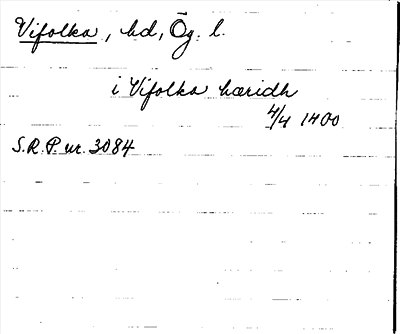 Vifolka, hd, Ög. l.
i Vifolka hæridh
4/4 1400
S.R.P. nr. 3084